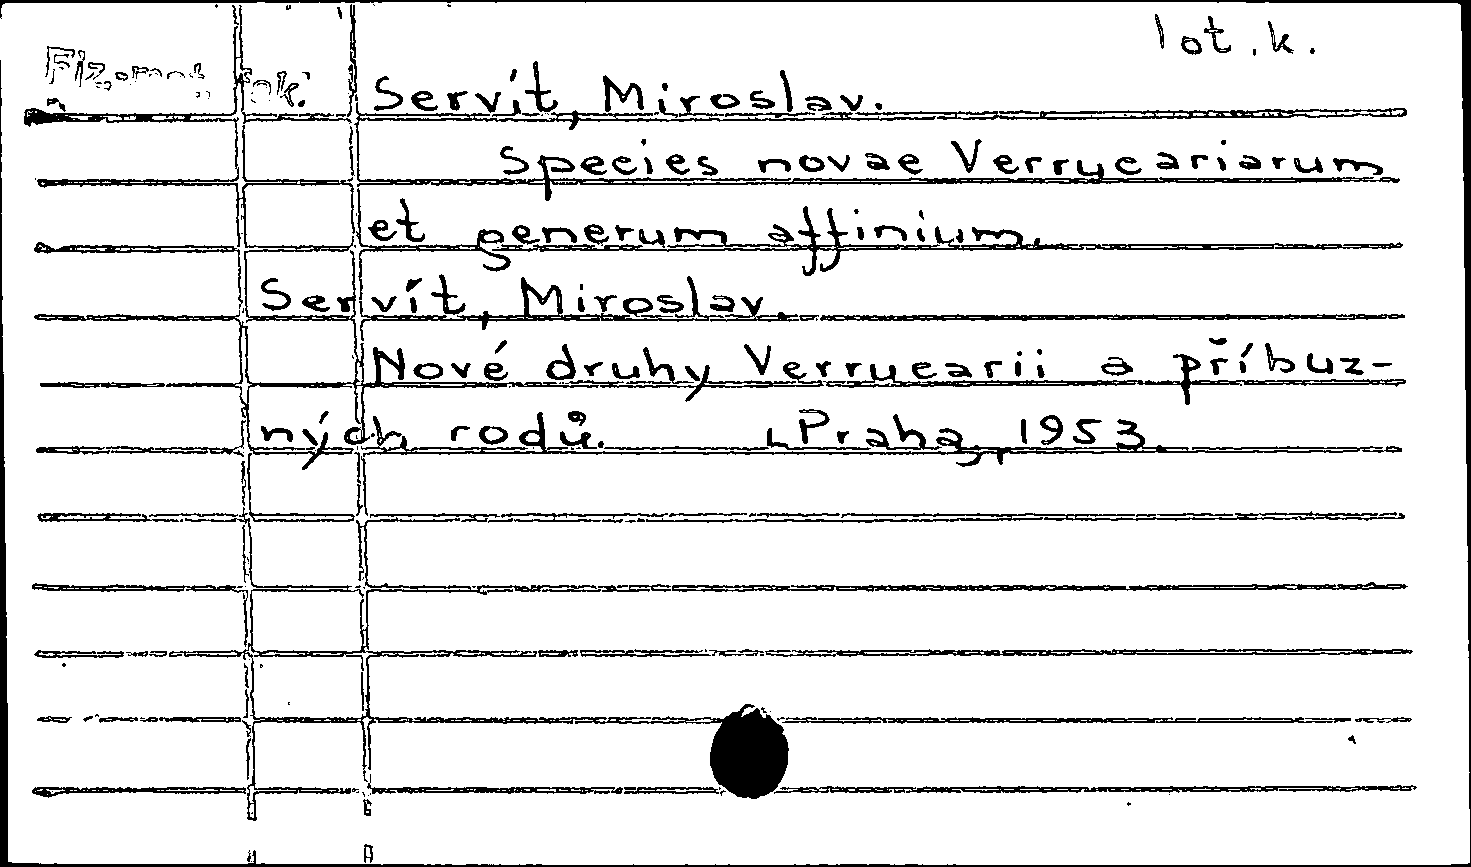 lot. k.
Fiz.-mat. fak.
Servít, Miroslav.
Species novae Verrucariarum
et generum affinium.
Servít, Miroslav.
Nové druhy Verrucarii a příbuz-
ných rodů. Praha, 1953.